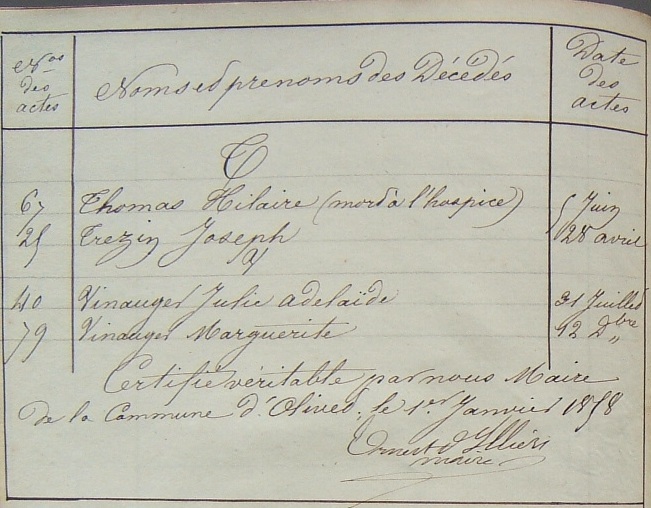 Nos des actes
Noms et prenoms des Décédés
Date des actes
T
67 Thomas Hilaire (mort à l'hospice) 5 Juin
25 Trezin Joseph 28 avril
V
40 Vinauget Julie adelaïde 31 Juillet
79 Vinauget Marguerite 12 Xbre
Certifié véritable par nous Maire
de la Commune d'Olivet, le 1er Janvier 1858
Ernest d'Illiers
maire